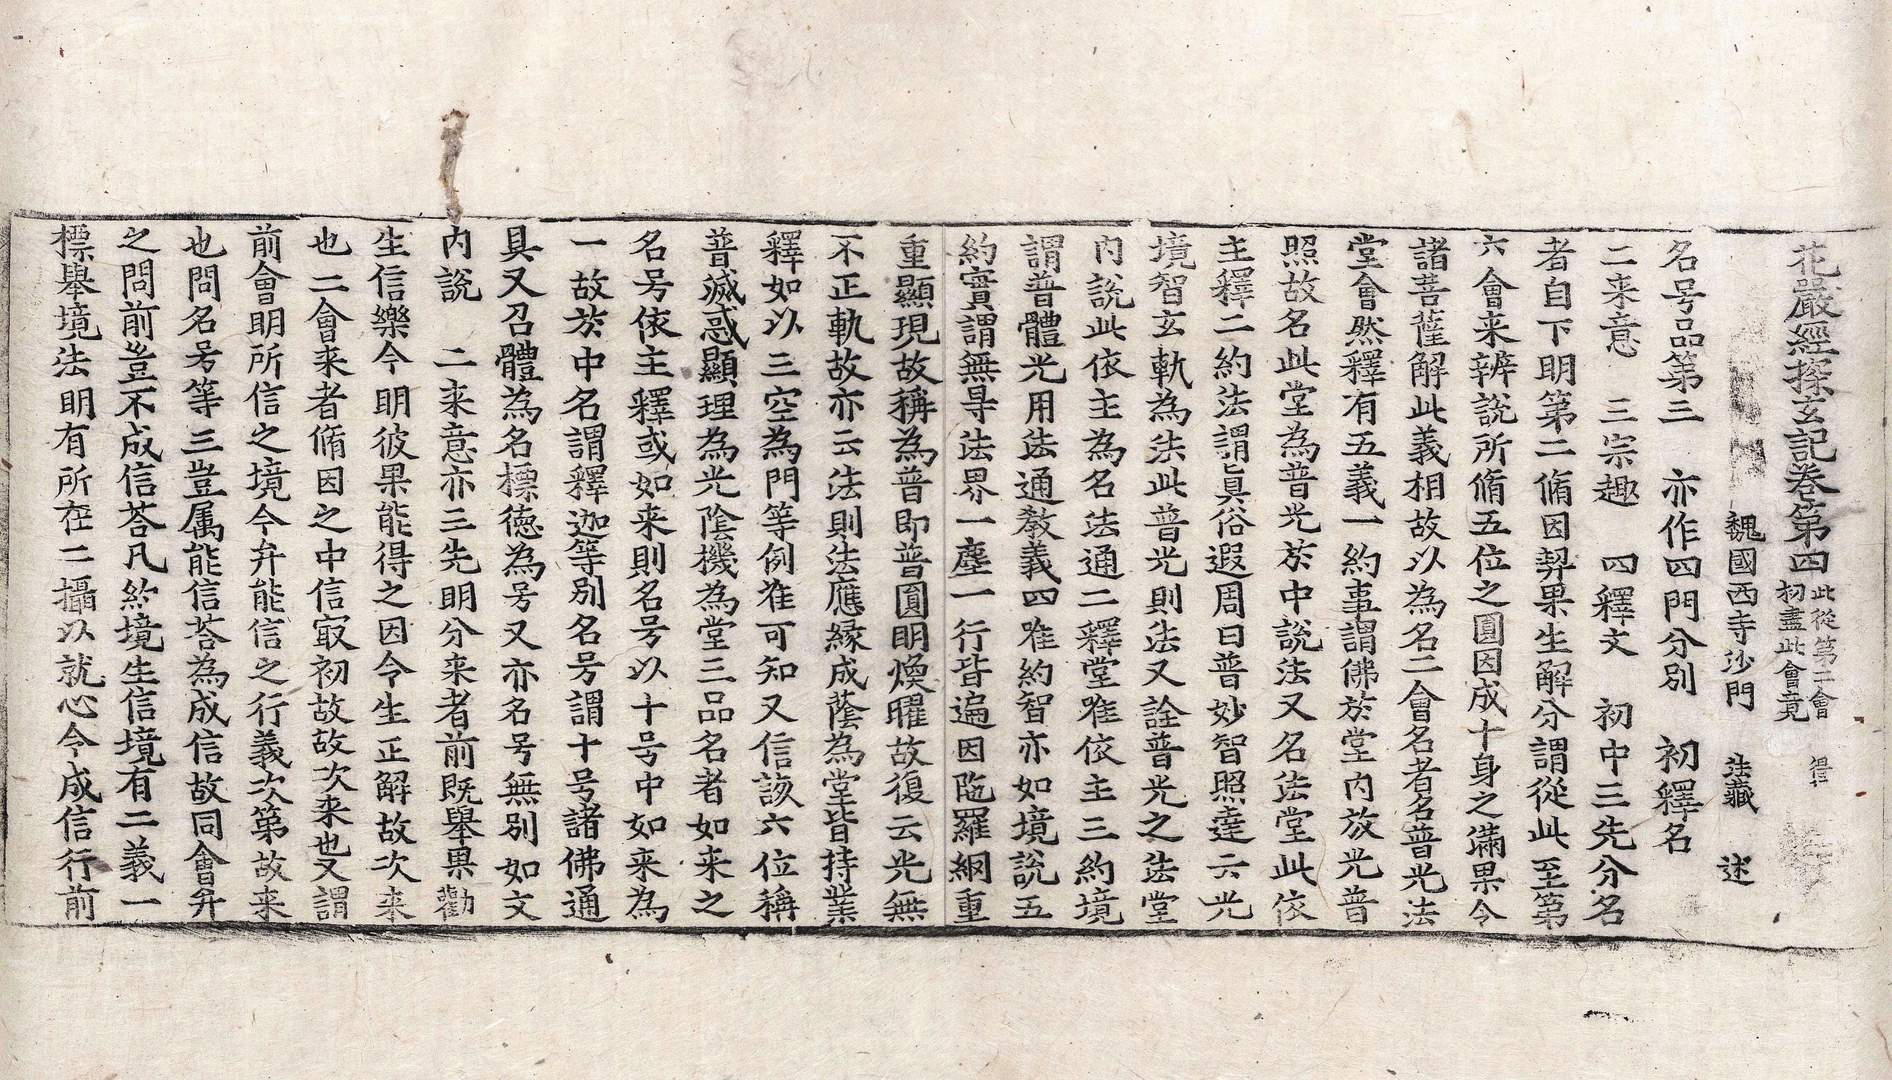 花嚴經探玄記卷第四 此從第二會初盡此會竟
魏國西寺沙門 法藏 述
名号品第三 亦作四門分別 初釋名
二来意 三宗趣 四釋文 初中三先分名
者自下明第二脩因契果生解分謂從此至第
六會来辨說所脩五位之圓因成十身之滿果令
諸菩薩解此義相故以為名二會名者名普光法
堂會然釋有五義一約事謂佛於堂內放光普
照故名此堂為普光於中說法又名法堂此依
主釋二約法謂眞俗遐周曰普妙智照達云光
境智玄軌為法此普光則法又詮普光之法堂
內說此依主為名法通二釋堂唯依主三約境
謂普體光用法通教義四唯約智亦如境說五
約實謂無㝵法界一塵一行皆遍因陁羅網重
重顯現故稱為普即普圓明煥曜故復云光無
不正軌故亦云法則法應緣成蔭為堂皆持業
釋如以三空為門等例准可知又信該六位稱
普滅惑顯理為光陰機為堂三品名者如来之
名号依主釋或如来則名号以十号中如来為
一故於中名謂釋迦等別名号謂十号諸佛通
具又召體為名標德為号又亦名号無別如文
內說 二来意亦三先明分来者前既舉果勸
生信樂今明彼果能得之因令生正解故次来
也二會来者脩因之中信㝡初故故次来也又謂
前會明所信之境今弁能信之行義次第故来
也問名号等三豈属能信荅為成信故同會弁
之問前豈不成信荅凡約境生信境有二義一
標舉境法明有所在二攝以就心令成信行前